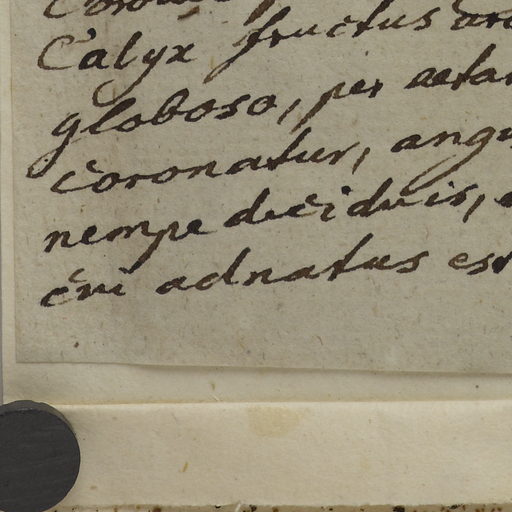 Calyx fructus
globoso, per aetat
coronatur, angu
nempe deciduis,
cui adnatus est